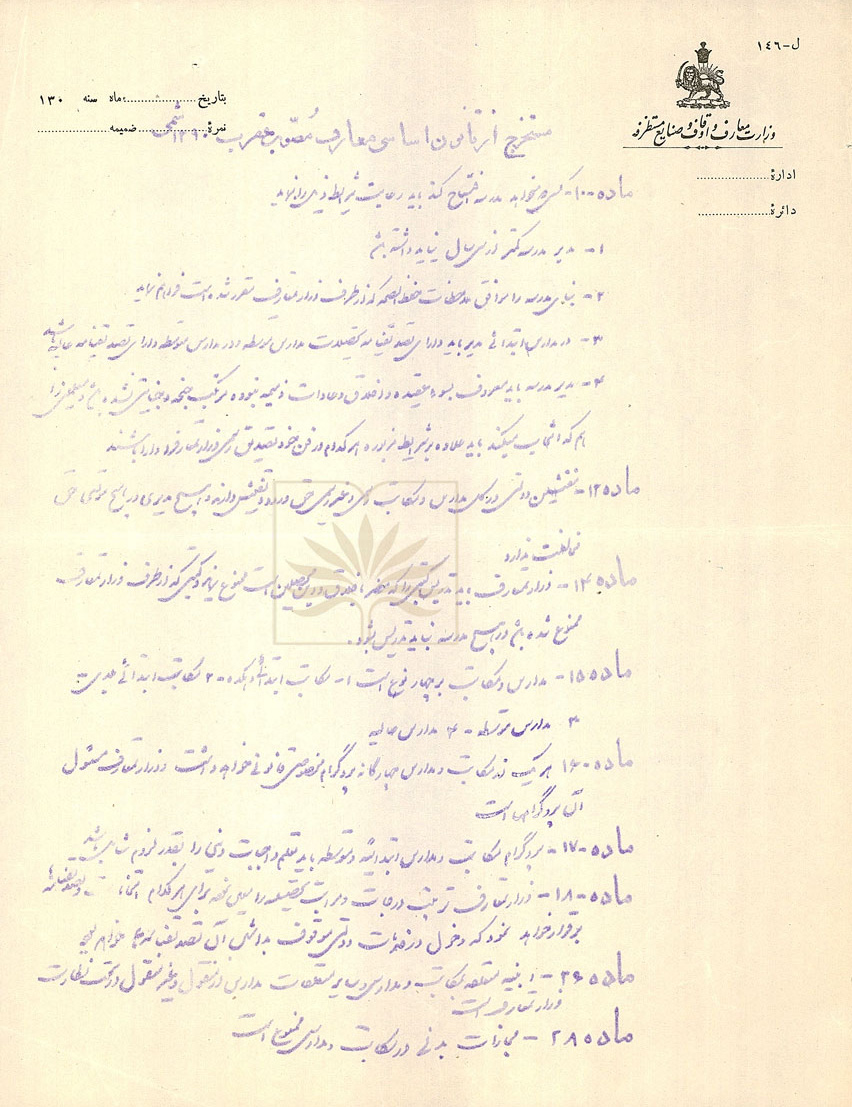 ل-١٤٦
وزارت معارف و اوقاف و صنایع مستظرفه
ادارهٔ
دائرهٔ
بتاریخ ماه سنه ١٣٠
نمرهٔ ضمیمه
مستخرج از قانون اساسی معارف مصوب عقرب ١٢٩٠ شمسی
ماده ١٠- کسی که بخواهد مدرسه افتتاح کند باید رعایت شرایط ذیل را نماید
١- مدیر مدرسه کمتر از سی سال نباید داشته باشد
٢- بنای مدرسه را موافق ملاحظات حفظ الصحه که از طرف وزارت معارف مقرر شده است فراهم نماید
٣- در مدارس ابتدائی مدیر باید دارای تصدیقنامه تحصیلات مدارس متوسطه و در مدارس متوسطه دارای تصدیقنامه عالیه باشد
۴- مدیر مدرسه باید معروف بسوء عقیده و اخلاق و عادات ذمیمه نبوده مرتکب جنحه و جنایتی نشده باشد و معلمین را
هم که انتخاب میکند باید علاوه بر شرایط مزبوره هر کدام در فن خود تصدیق رسمی وزارت معارف را دارا باشند
ماده ١٢- مفتشین دولتی در کل مدارس و مکاتب رسمی و غیر رسمی حق ورود و تفتیش دارند و هیچ مدیری در هیچ موقعی حق
مخالفت ندارد
ماده ١۴- وزارت معارف باید تدریس کتبی را که مضر باخلاق و دین محصلین است ممنوع نماید و کتبی که از طرف وزارت معارف
ممنوع شده باشد در هیچ مدرسه نباید تدریس شود.
ماده ١۵- مدارس و مکاتب بر چهار نوع است ١- مکاتب ابتدائی دهکده- ٢ مکاتب ابتدائی بلدی-
٣ مدارس متوسطه- ۴ مدارس عالیه
ماده ١۶- هر یک از مکاتب و مدارس چهارگانه پروگرام مخصوصی قانونی خواهد داشت و وزارت معارف مسئول
آن پروگرامها است
ماده ١٧- پروگرام مکاتب و مدارس ابتدائیه و متوسطه باید تعلیم واجبات دینی را بقدر لزوم شامل باشد
ماده ١٨- وزارت معارف ترتیب درجات و مراتب تحصیلیه را معین نموده برای هر کدام امتحانات و تصدیقنامه
برقرار خواهد نمود که دخول در خدمات دولتی موقوف بداشتن آن تصدیقنامه ها خواهد بود
ماده ٢۶- ابنیه متعلقه بمکاتب و مدارس و سایر متعلقات مدارس از منقول و غیر منقول در تحت نظارت
وزارت معارف است
ماده ٢٨- مجازات بدنی در مکاتب و مدارس ممنوع است